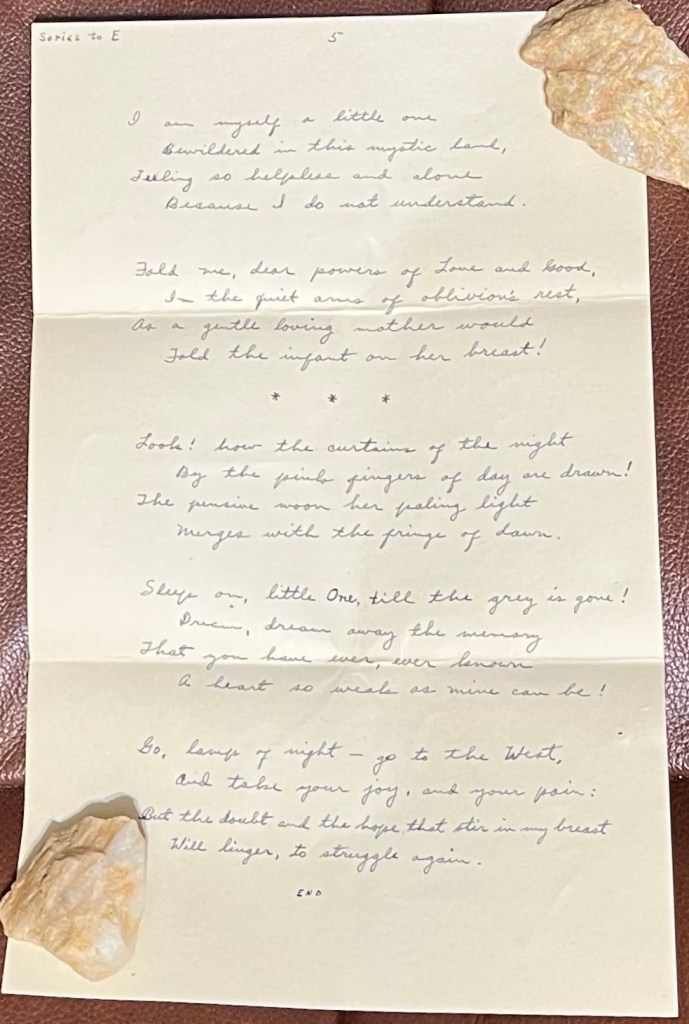 Series to E
5
I am myself a little one
Bewildered in this mystic land,
Feeling so helpless and alone
Because I do not understand.
Fold me, dear powers of Love and Good,
In the quiet arms of oblivion's rest,
As a gentle loving mother would
Fold the infant on her breast!
* * *
Look! how the curtains of the night
By the pink fingers of day are drawn!
The pensive moon her paling light
Merges with the fringe of dawn.
Sleep on, little One, till the grey is gone!
Dream, dream away the memory
That you have ever, ever known
A heart so weak as mine can be!
Go, lamp of night — go to the West,
And take your joy, and your pain:
But the doubt and the hope that stir in my breast
Will linger, to struggle again.
END